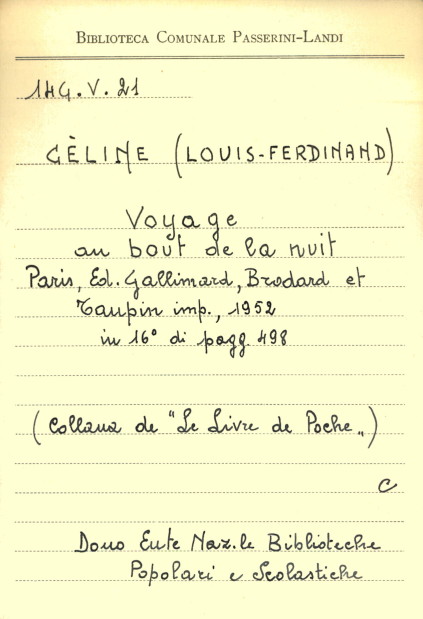 BIBLIOTECA COMUNALE PASSERINI-LANDI
1HG.V.21
CÈLINE (LOUIS-FERDINAND)
Voyage
au bout de la nuit
Paris, Ed. Gallimard, Brodard et
Taupin imp., 1952
in 16° di pagg. 498
(Collana de "Le Livre de Poche„)
C
Dono Ente Naz.le Biblioteche
Popolari e Scolastiche